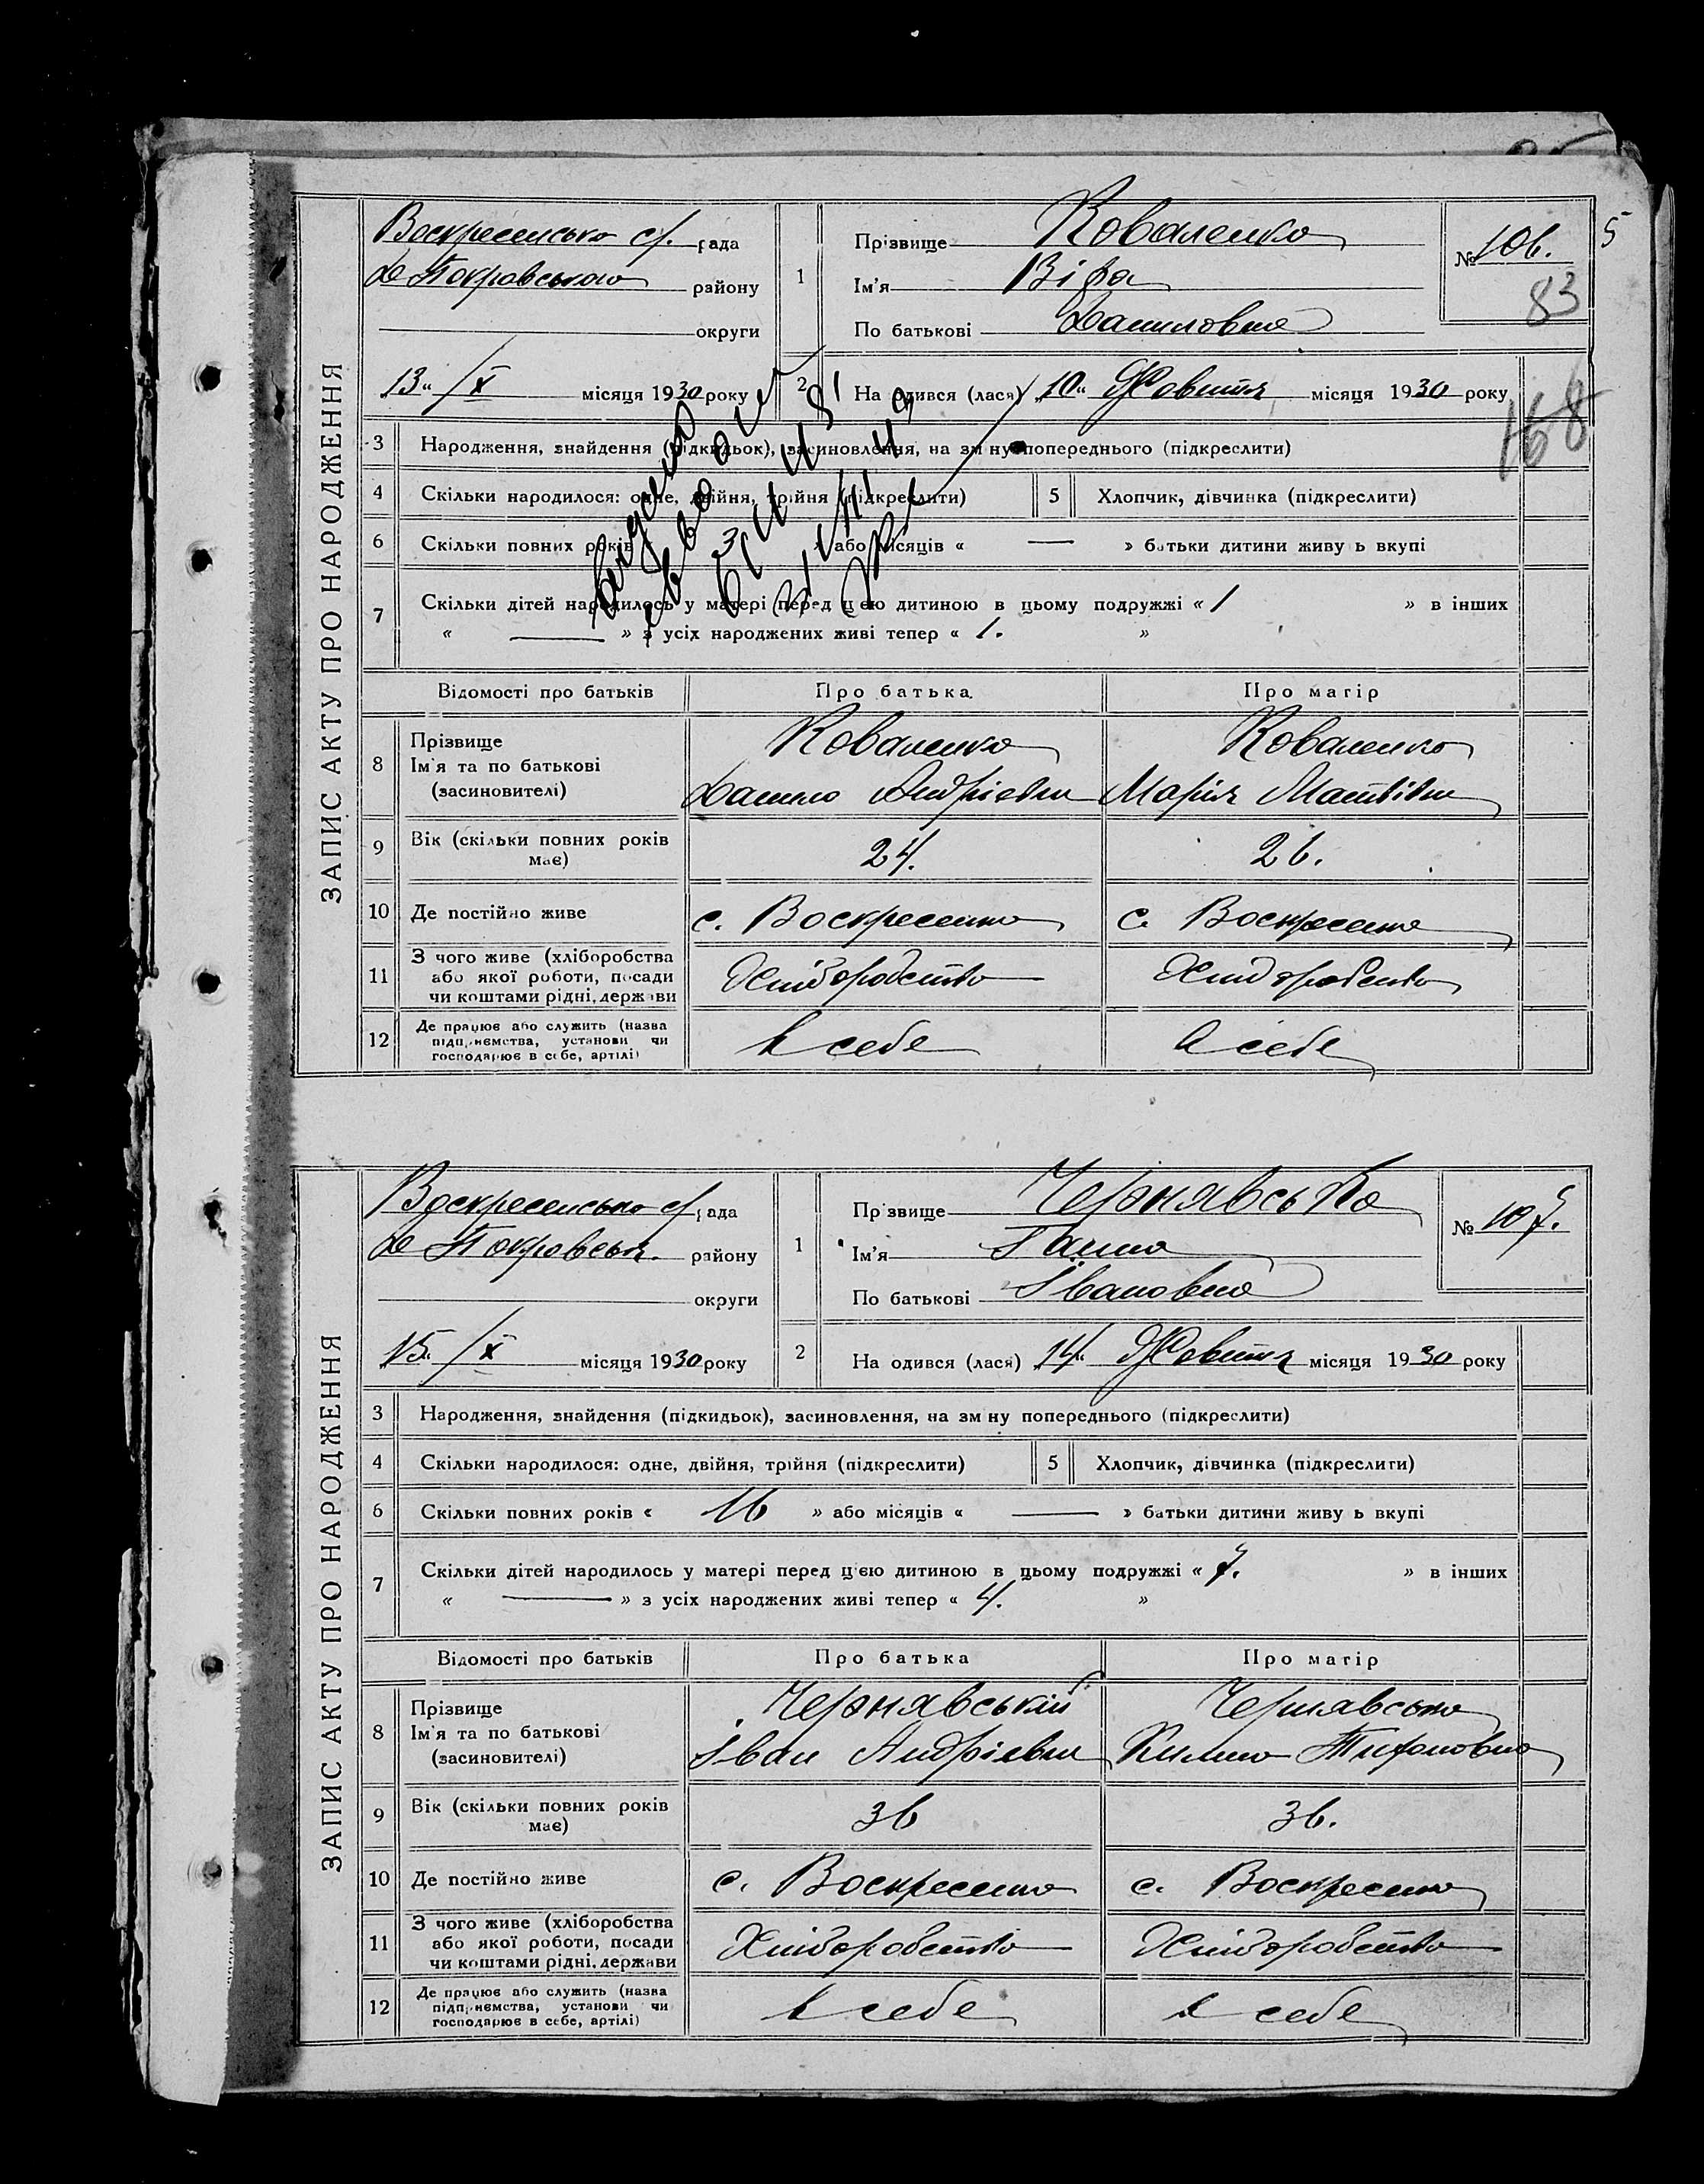 ЗАПИС АКТУ ПРО НАРОДЖЕННЯ
Воскресенська с/. рада
Покровського району
округи
13 " /X місяця 1930 року
1 Прізвище Коваленко
Ім'я Віра
По батькові Даниловна
№ 106.
5
83
168
2 На одився (лася) "10" Жовтня місяця 1930 року
3 Народження, знайдення (підкидьок), засиновлення, на зм ну попереднього (підкреслити)
4 Скільки народилося: одне, двійня, трійня (підкреслити)
5 Хлопчик, дівчинка (підкреслити)
6 Скільки повних років 3 » або місяців « — » батьки дитини живу ь вкупі
7 Скільки дітей народилось у матері перед цією дитиною в цьому подружжі « 1 » в інших
« — » з усіх народжених живі тепер « 1. »
Відомості про батьків Про батька Про матір
8 Прізвище
Ім'я та по батькові
(засиновителі)
Коваленко
Данило Андрієвич
Коваленко
Марія Матвієвна
9 Вік (скільки повних років має) 24. 26.
10 Де постійно живе с. Воскресенка с. Воскресенка
11 З чого живе (хліборобства
або якої роботи, посади
чи коштами рідні, держави
Хліборобство Хліборобство
12 Де працює або служить (назва
підприємства, установи чи
господарює в себе, артілі)
В себе В себе
ЗАПИС АКТУ ПРО НАРОДЖЕННЯ
Воскресенська с/ рада
Покровськ. району
округи
15 " /X місяця 1930 року
1 Прізвище Чернявська
Ім'я Ганна
По батькові Івановна
№ 107.
2 На одився (лася) 14" Жовтня місяця 1930 року
3 Народження, знайдення (підкидьок), засиновлення, на зм ну попереднього (підкреслити)
4 Скільки народилося: одне, двійня, трійня (підкреслити)
5 Хлопчик, дівчинка (підкреслити)
6 Скільки повних років « 16 » або місяців « — » батьки дитини живу ь вкупі
7 Скільки дітей народилось у матері перед цією дитиною в цьому подружжі « 7. » в інших
« — » з усіх народжених живі тепер « 4. »
Відомості про батьків Про батька Про матір
8 Прізвище
Ім'я та по батькові
(засиновителі)
Чернявський
Іван Андрієвич
Чернявська
Килина
9 Вік (скільки повних років має) 36 36.
10 Де постійно живе с. Воскресенка с. Воскресенка
11 З чого живе (хліборобства
або якої роботи, посади
чи коштами рідні, держави
Хліборобство Хліборобство
12 Де працює або служить (назва
підприємства, установи чи
господарює в себе, артілі)
В себе В себе